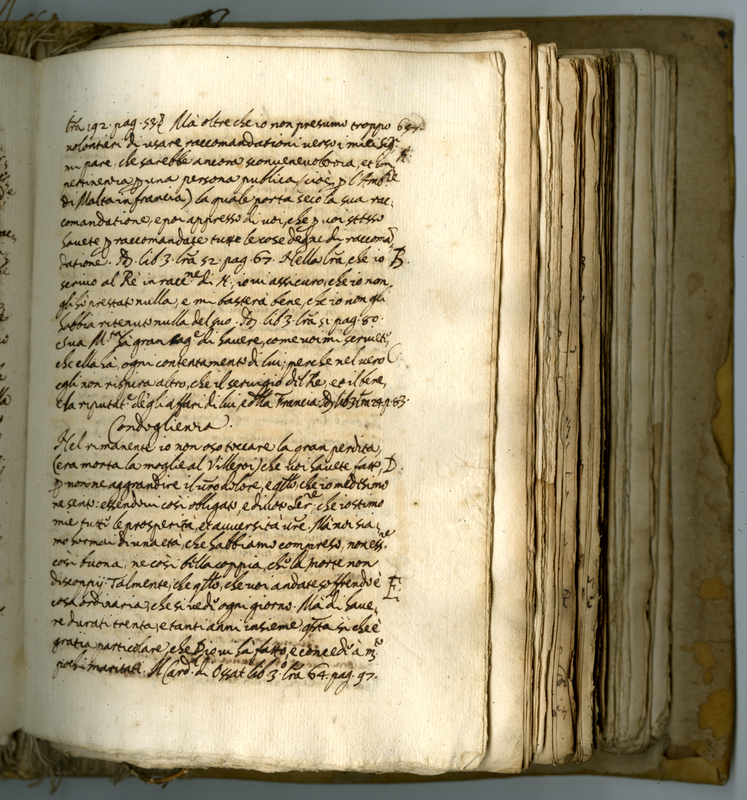 lr̃a 192. pag. 53 Mà oltre che io non presumo troppo
uolontieri di usare raccomandationi uerso i miei sig.ri
mi pare, che sarebbe ancora sconueneuolezza, et im
pertinenza una persona publica (cioè l'Amb.re
di Malta in francia) la quale porta seco la sua rac:
comandatione, e poi appresso di uoi, che uoi stesso
hauete raccomandate tutte le cose degne di raccomã
datione. lib. 3. lr̃a 52. pag. 67. Nella lr̃a, che io B.
scriuo al Rè in racc.ne di N., io ui assicuro, che io non
gli hò prestato nulla, e mi basterà bene, che io non gli
habbia ritenuto nulla del suo. lib. 3. lr̃a 51. pag. 80.
Sua M.tà hà gran rag.e di hauere, come uoi mi scriuete,
che ella hà, ogni contentamento di lui; perche nel uero C
egli non rispira altro, che il seruigio del Re, et il bene,
e la riputat.e degli affari di lui, e della Francia. pag. 83.
Condoglienza.
Nel rimanente io non oso toccare la gran perdita
(era morta la moglie al Villeroi) che uoi hauete fatto, D.
non ne aggrandire il ur̃o dolore, e q̃llo, che io medesimo
ne sento: essendoui così obligato, e diuoto Ser.re che io stimo
mie tutte le prosperità, et auuersità ur̃e. Mà noi sia:
mo hormai di una età, che habbiamo compreso, non ess.re
così buona, ne così bella coppia, che la morte non
disconpij; Talmente, che q̃llo, che uoi andate soffrendo è E.
cosa ordinaria, che si uede ogni giorno. Mà di haue:
re durati trenta, e tanti anni insieme q̃sta si che è
gratia particolare, che Dio ui hà fatto, e concede à m.to
pochi maritati. Il Card. di Ossat lib. 3.o lr̃a 64. pag. 97.